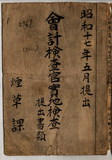 昭和十七年五月提出
會計檢查官實地檢查
提出書類
煙草課